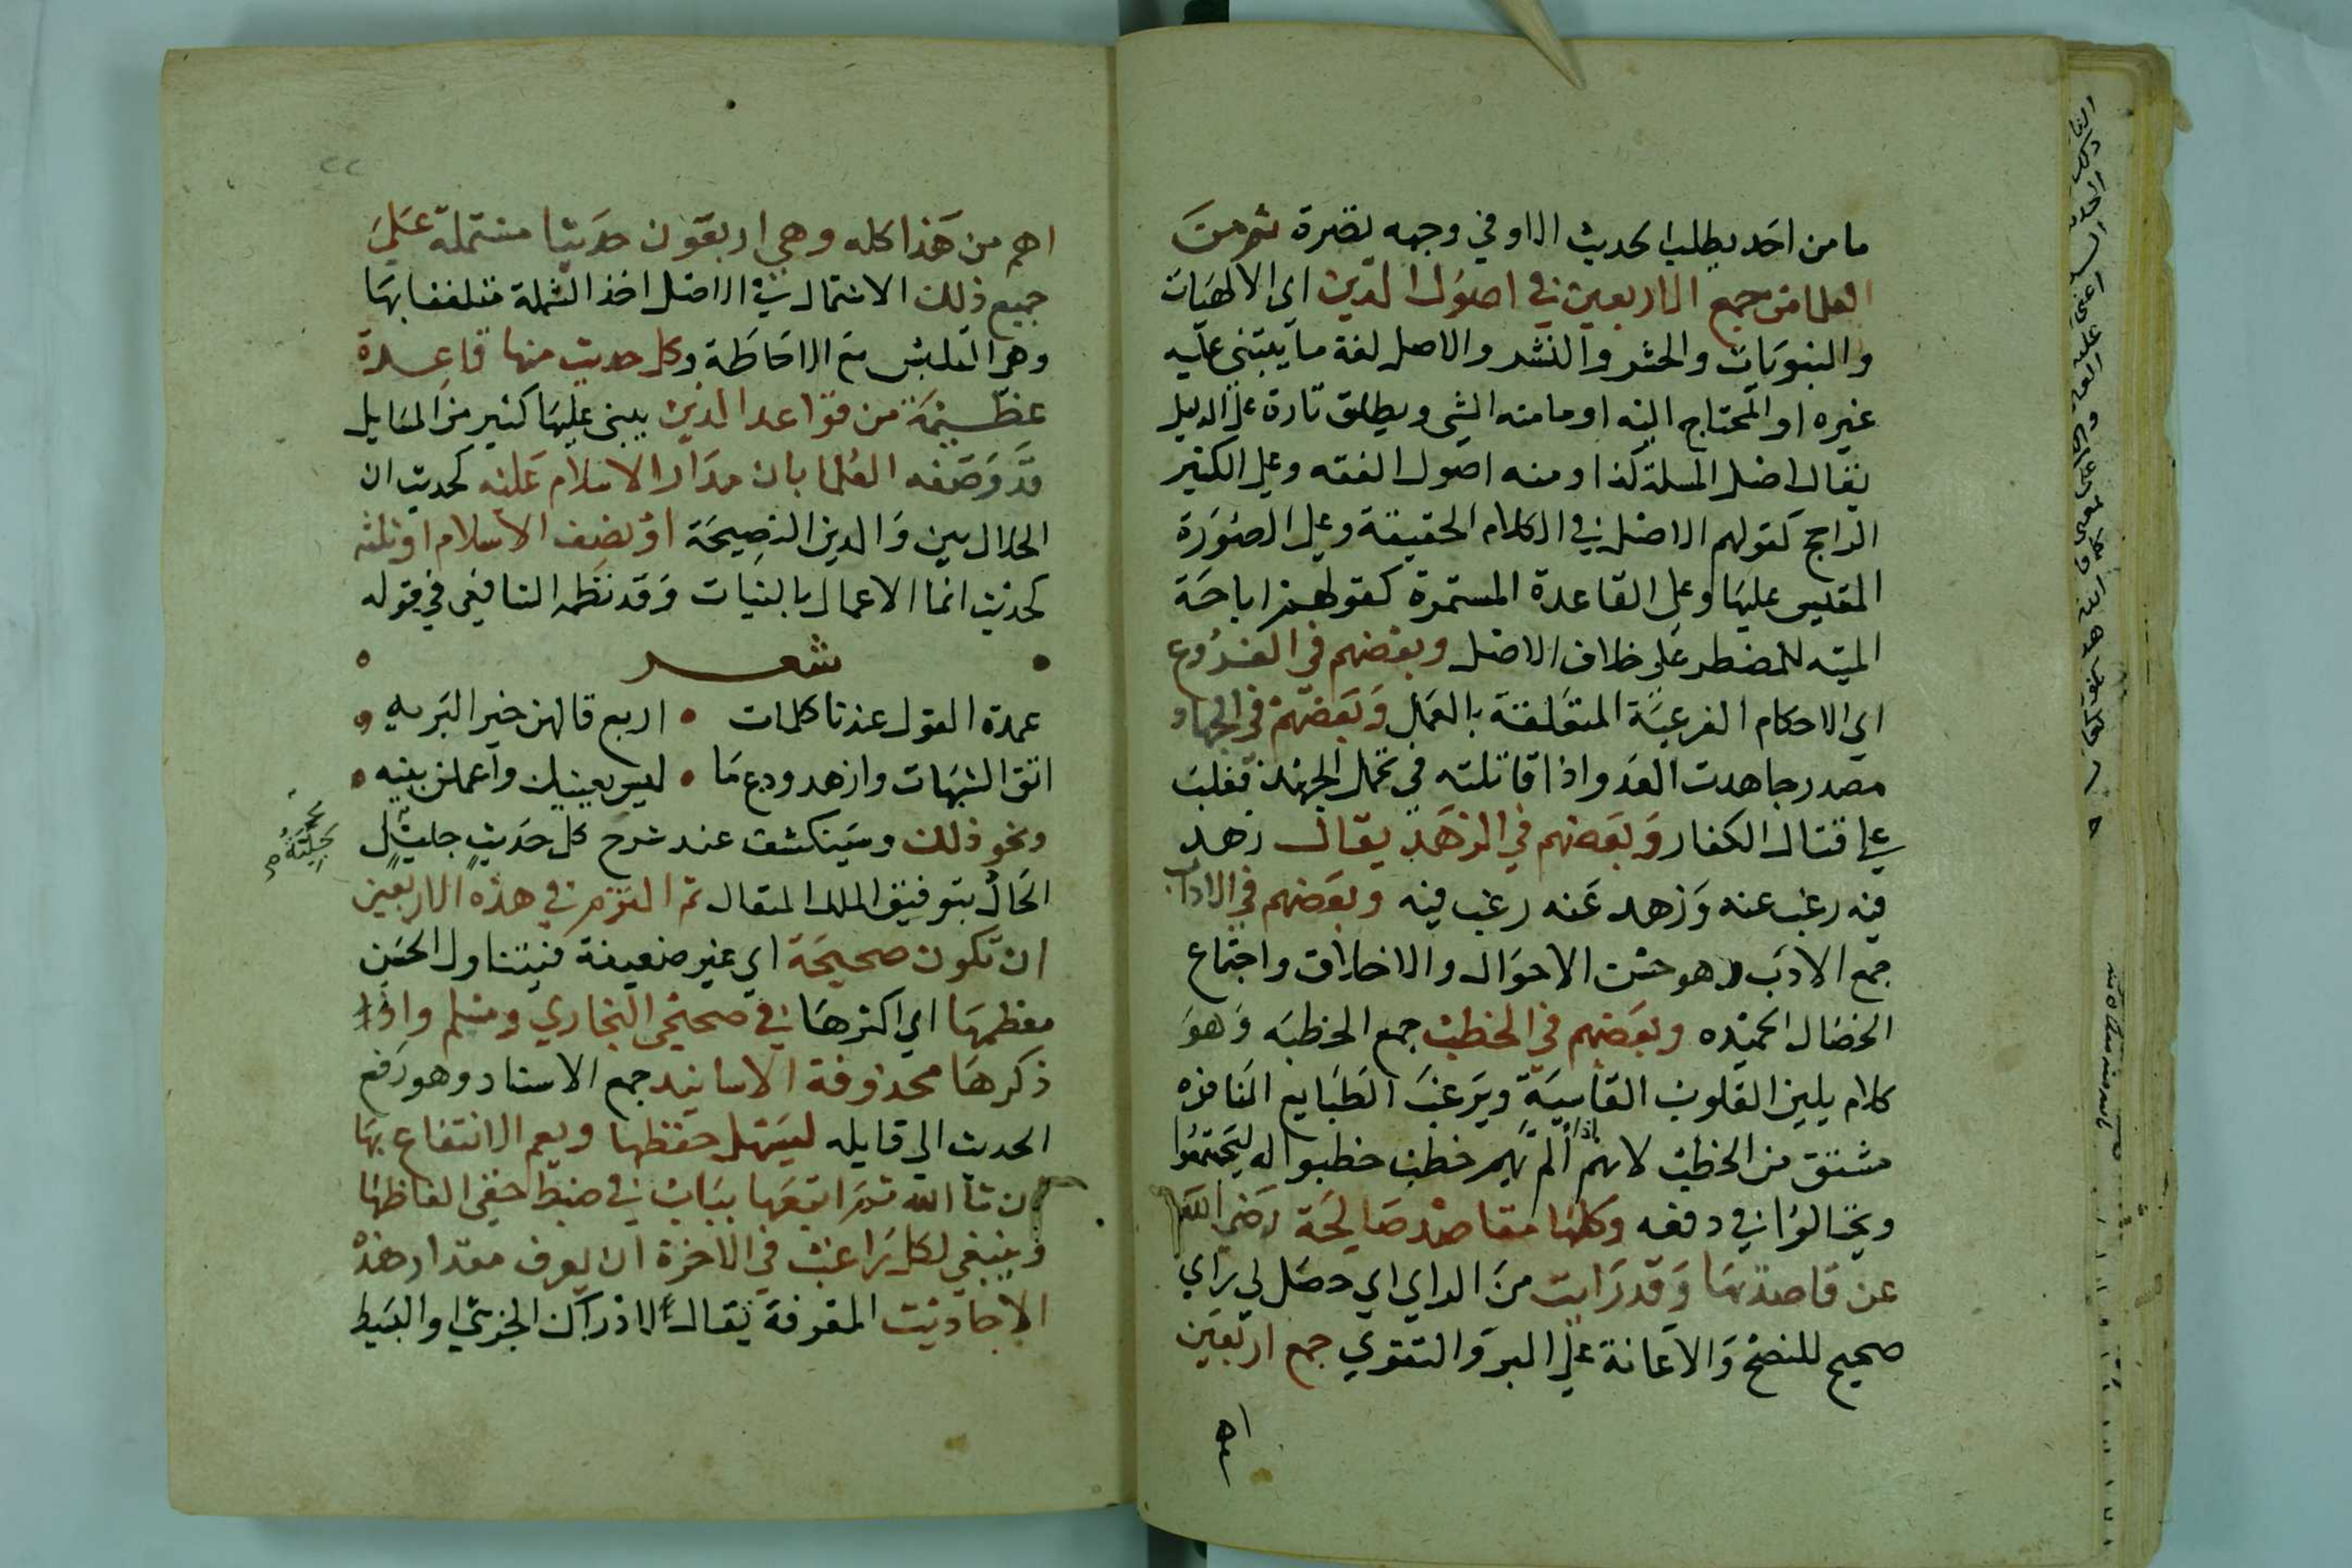 ما من احد يطلب الحديث الا وفي وجهه نضرة ثم من
العلما من جمع الاربعين في اصول الدين اي الالهيات
والنبويات والحشر والنشر والاصل لغة ما يبتني عليه
غيره او المحتاج اليه او ما منه الشي ويطلق تارة على الدليل
يقال اصل المسلة كذا ومنه اصول الفقه وعلى الكثير
الراجح كقولهم الاصل في الكلام الحقيقة وعلى الصورة
المقيس عليها وعلى القاعدة المستمرة كقولهم اباحة
الميته للمضطر على خلاف الاصل وبعضهم في الفروع
اي الاحكام الفرعية المتعلقة بالعمل وبعضهم في الجهاد
مصدر جاهدت العدو اذا قاتلته في تحمل الجهد فغلب
على قتال الكفار وبعضهم في الزهد يقال زهد
فيه رغب عنه وزهد عنه رغب فيه وبعضهم في الاداب
جمع الادب وهو حسن الاحوال والاخلاق واجتماع
الخصال الحميده وبعضهم في الخطب جمع الخطبه وهو
كلام يلين القلوب القاسية ويرغب الطبايع النافره
مشتق من الخطب لانهم اذا الم بهم خطب خطبوا له ليجتمعوا
ويحتالوا في دفعه وكلها مقاصد صالحة رضي الله
عن قاصديها وقد رايت من الراي اي حصل لي راي
صحيح للنصح والاعانة على البر والتقوي جمع اربعين
اهم
اهم من هذا كله وهي اربعون حديثا مشتملة على
جميع ذلك الاشتمال في الاصل اخذ الشملة متلففا بها
وهو التلبس مع الاحاطة وكل حديث منها قاعدة
عظيمة من قواعد الدين يبني عليها كثير من المسايل
قد وصفه العلما بان مدار الاسلام عليه كحديث ان
الحلال بين والدين النصيحة او نصف الاسلام او ثلثه
كحديث انما الاعمال بالنيات وقد نظمه الشافعي في قوله
شعر
عمدة القول عندنا كلمات • اربع قالهن خير البريه
اتق الشبهات وازهد ودع ما • ليس يعنيك واعملن بنيه
ونحو ذلك وسينكشف عند شرح كل حديث جليل
الحال بتوفيق الملك المتعال ثم التزم في هذه الاربعين
ان تكون صحيحة اي غير ضعيفة فيتناول الحسن
معظمها اي اكثرها في صحيحي البخاري ومسلم واذا
ذكرها محذوفة الاسانيد جمع الاسناد وهو رفع
الحديث الي قايله ليسهل حفظها ويعم الانتفاع بها
ان شا الله ثم اتبعها بباب في ضبط خفي الفاظها
وينبغي لكل راغب في الاخرة ان يعرف مقدار هذه
الاحاديث المعرفة يقال لادراك الجزئي او البسيط